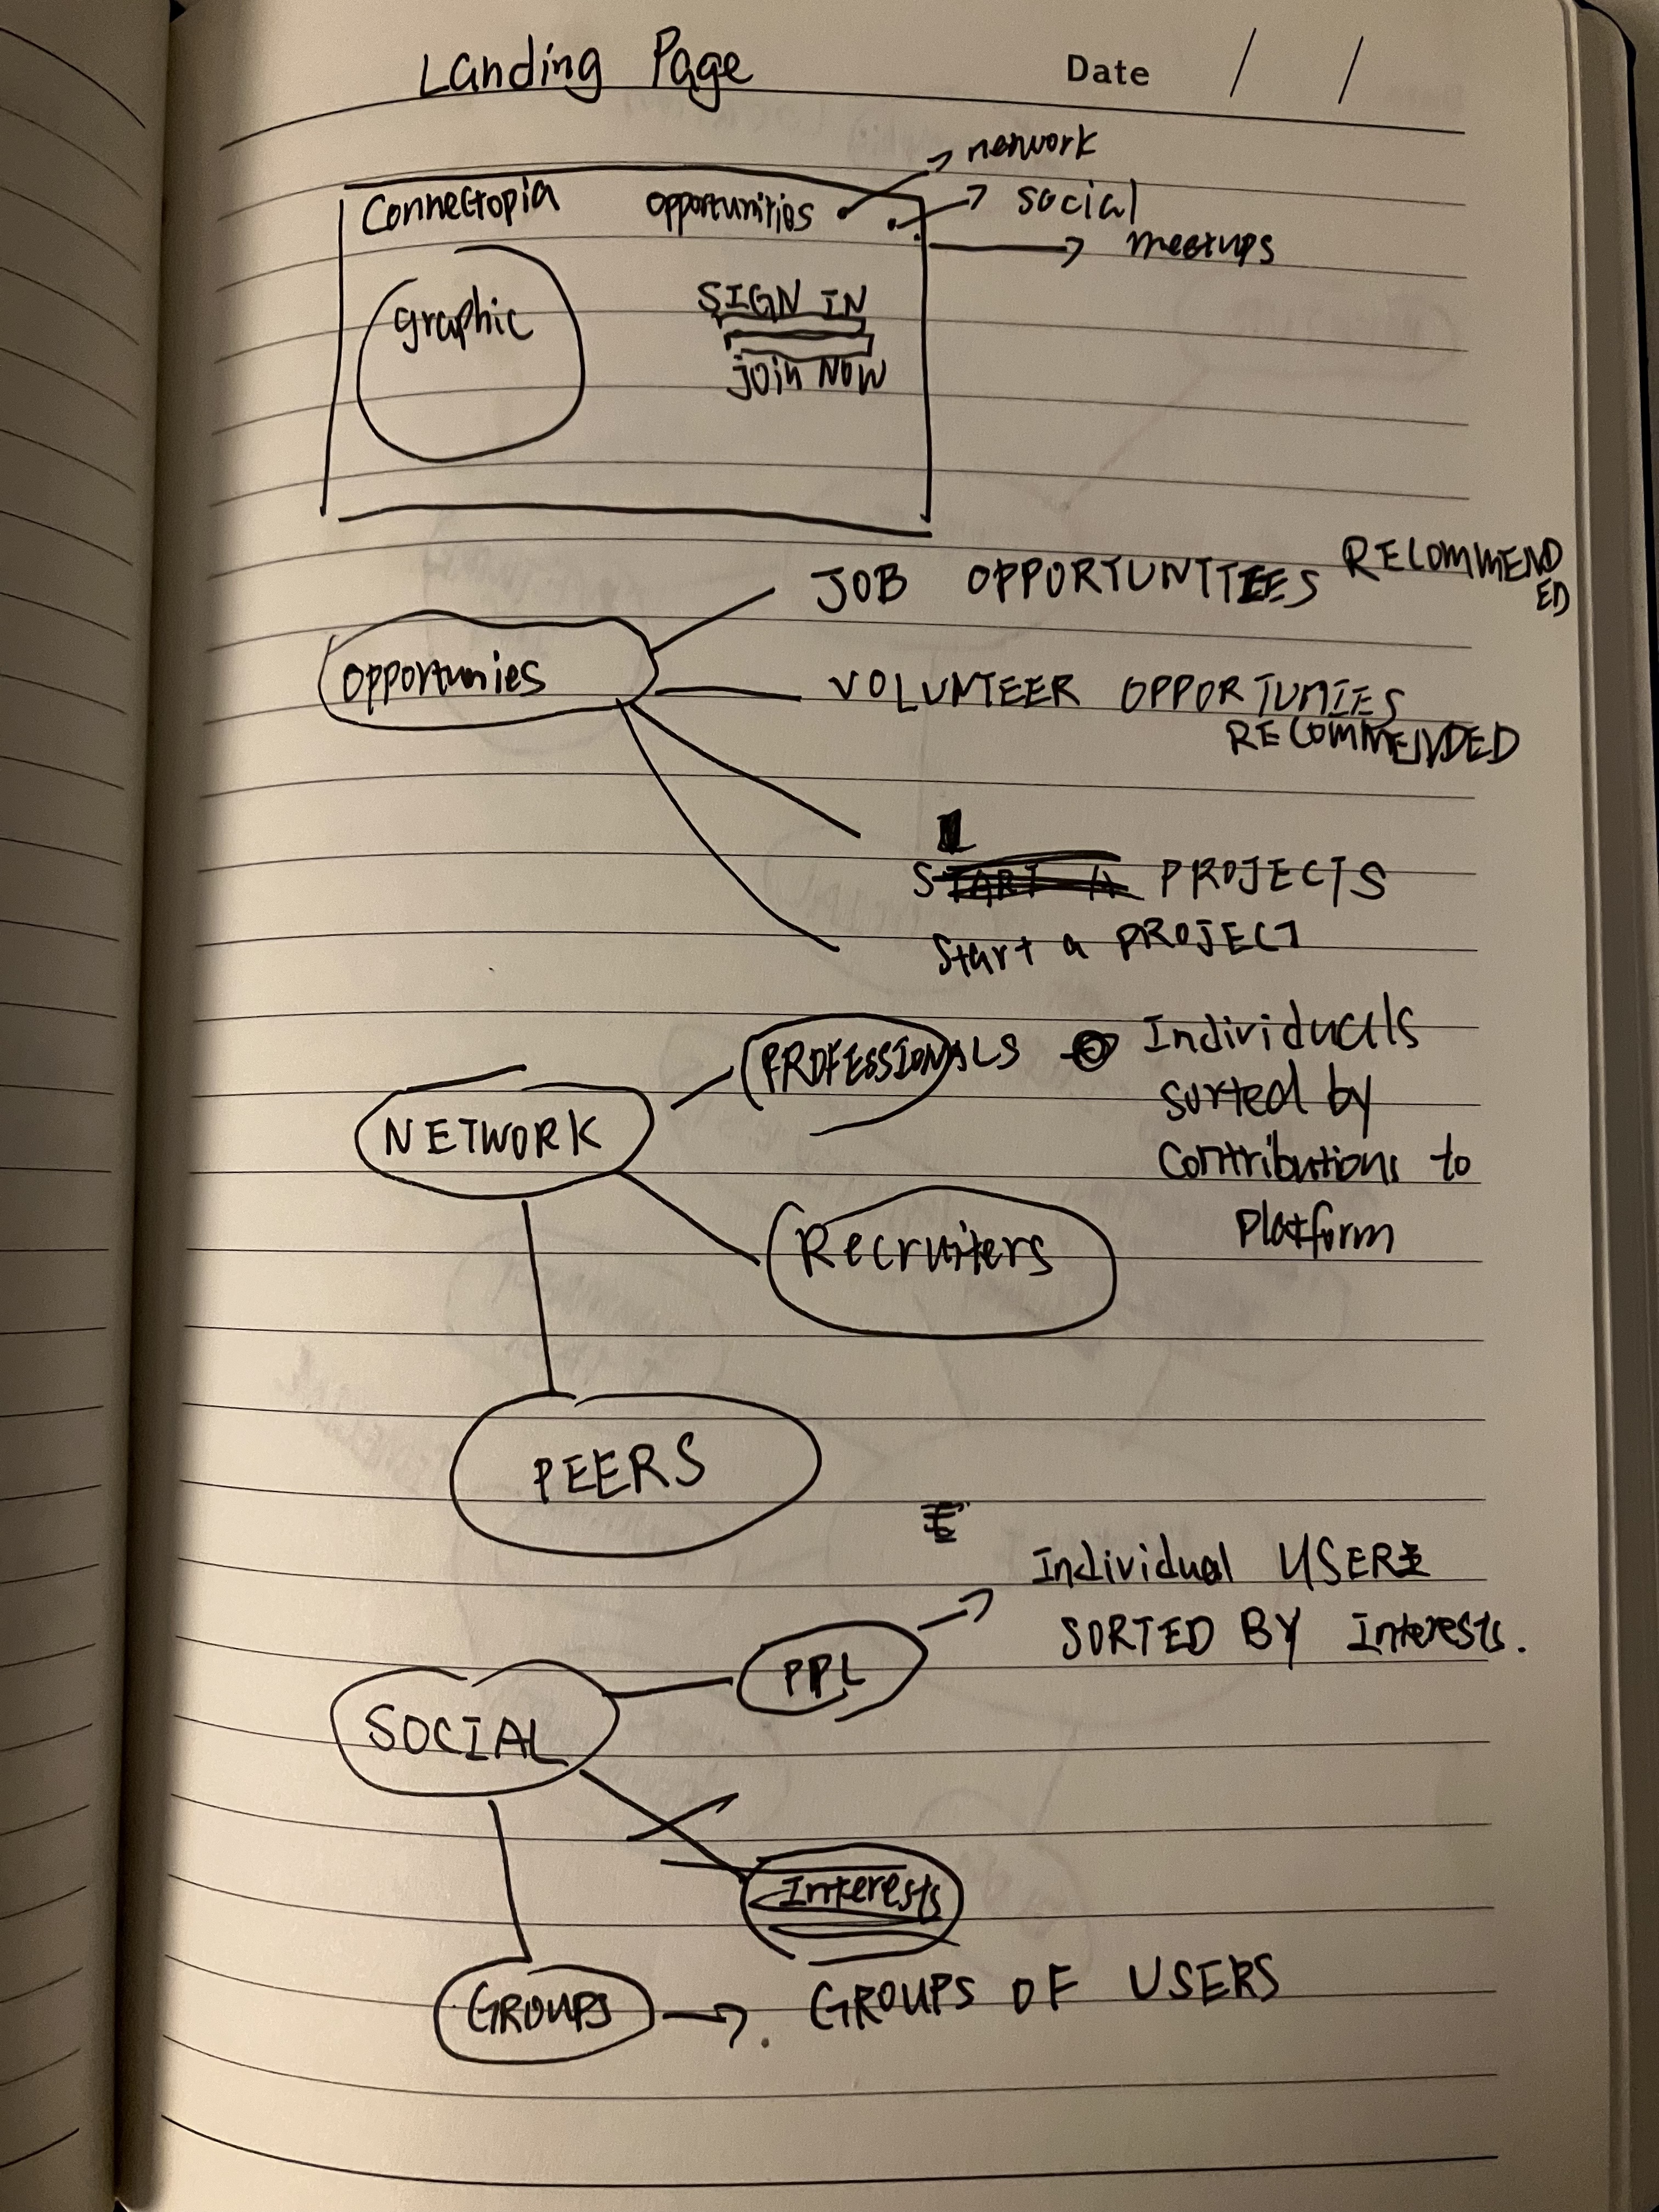 Landing Page
Date / /
network
Connectopia opportunities social
meetups
graphic
SIGN IN
JOIN NOW
JOB OPPORTUNITIEES RECOMMEND
ED
opportunies
VOLUNTEER OPPORTUNIES
RECOMMENDED
PROJECTS
Start a PROJECT
PROFESSIONALS Individuals
sorted by
NETWORK
contributions to
platform
Recruiters
PEERS
Individual USERS
SORTED BY Interests.
PPL
SOCIAL
Interests
GROUPS GROUPS OF USERS